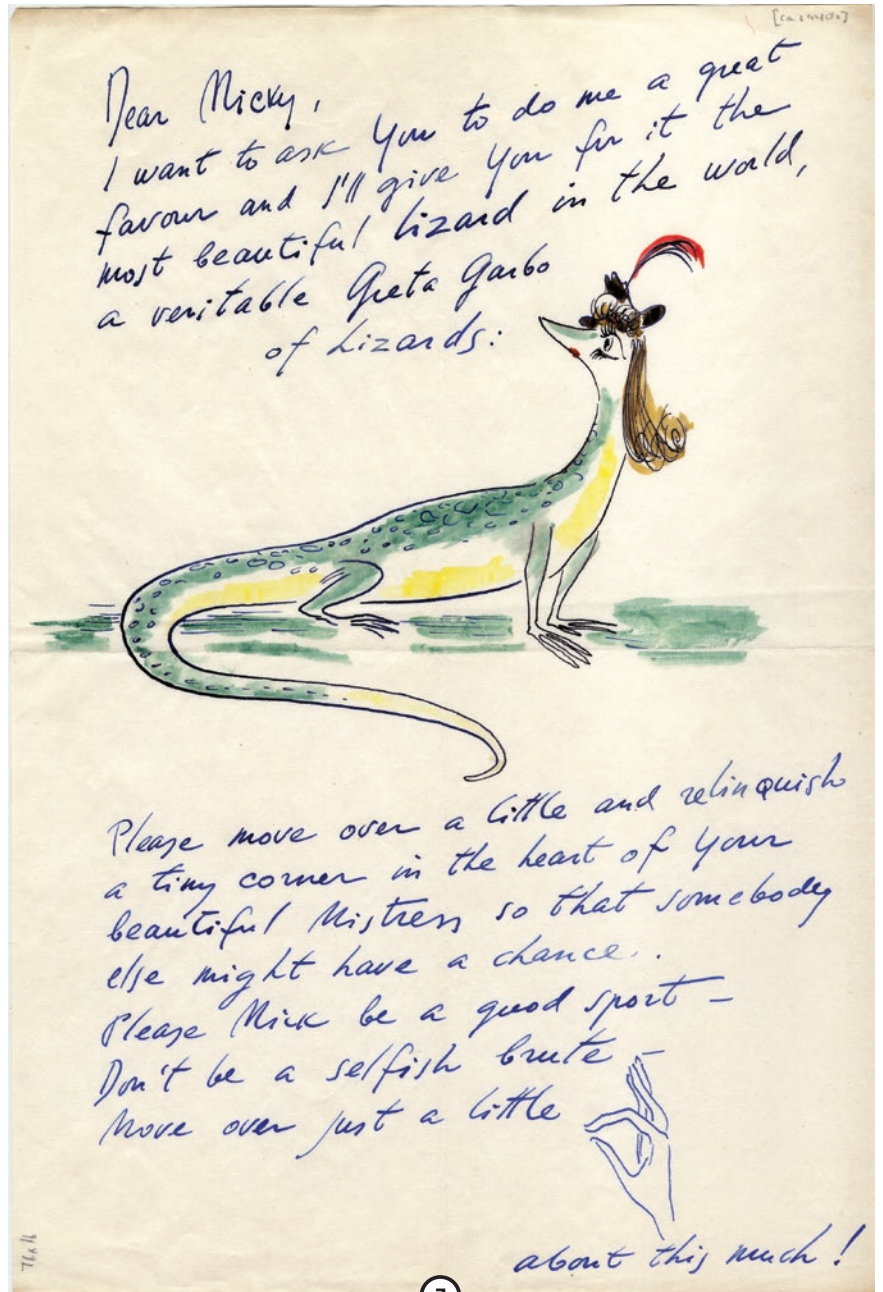 Dear Micky,
I want to ask You to do me a great
favour and I'll give You for it the
most beautiful Lizard in the world,
a veritable Greta Garbo
of Lizards:
Please move over a little and relinquish
a tiny corner in the heart of Your
beautiful Mistress so that somebody
else might have a chance..
Please Mick be a good sport –
Don't be a selfish brute –
Move over just a little
about this much!